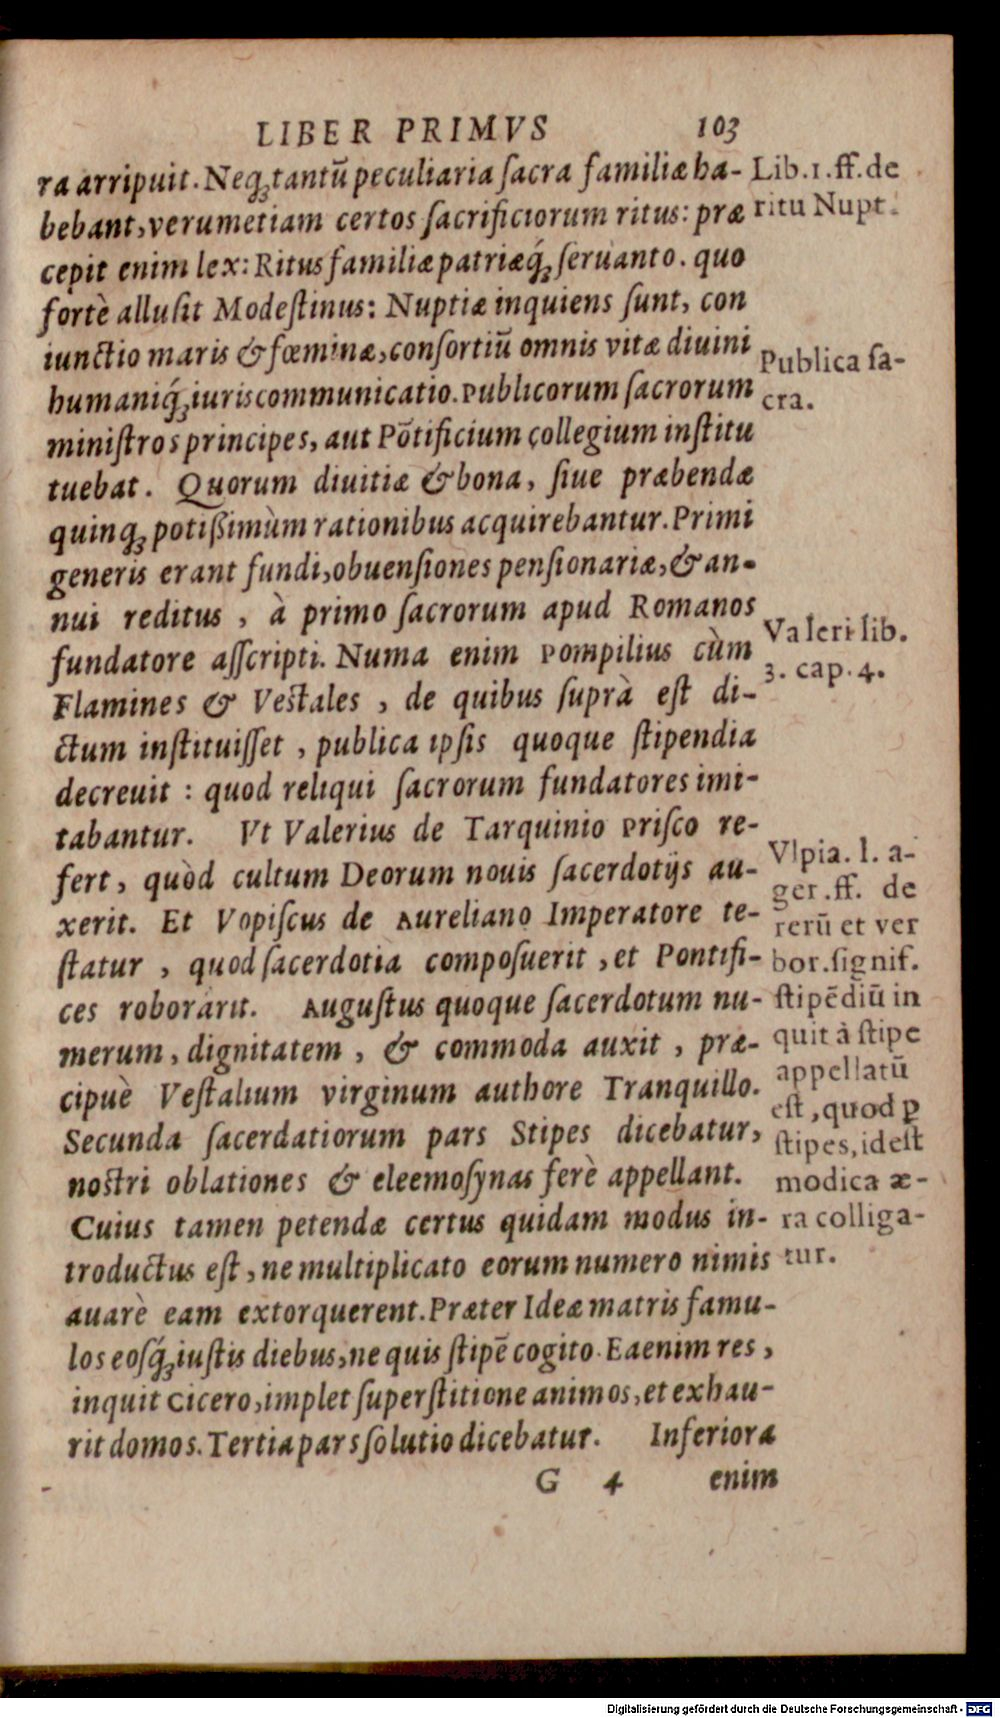 LIBER PRIMVS 103
ra arripuit. Neq₃ tantũ peculiaria ſacra familiæ ha-
bebant, verumetiam certos ſacrificiorum ritus: præ
cepit enim lex: Ritus familiæ patriæq́₃ ſeruanto. quo
fortè alluſit Modeſtinus: Nuptiæ inquiens ſunt, con
iunctio maris & fœminæ, conſortiũ omnis vitæ diuini
humaniq́₃ iuris communicatio. Publicorum ſacrorum
miniſtros principes, aut Põtificium collegium inſtitu
tuebat. Quorum diuitiæ & bona, ſiue præbendæ
quinq₃ potißimùm rationibus acquirebantur. Primi
generis erant fundi, obuenſiones penſionariæ, & an-
nui reditus, à primo ſacrorum apud Romanos
fundatore aſſcripti. Numa enim Pompilius cùm
Flamines & Veſtales, de quibus ſuprà eſt di-
ctum inſtituiſſet, publica ipſis quoque ſtipendia
decreuit: quod reliqui ſacrorum fundatores imi-
tabantur. Vt Valerius de Tarquinio Priſco re-
fert, quòd cultum Deorum nouis ſacerdotijs au-
xerit. Et Vopiſcus de Aureliano Imperatore te-
ſtatur, quod ſacerdotia compoſuerit, et Pontifi-
ces roborarit. Auguſtus quoque ſacerdotum nu-
merum, dignitatem, & commoda auxit, præ-
cipuè Veſtalium virginum authore Tranquillo.
Secunda ſacerdatiorum pars Stipes dicebatur,
noſtri oblationes & eleemoſynas ferè appellant.
Cuius tamen petendæ certus quidam modus in-
troductus eſt, ne multiplicato eorum numero nimis
auarè eam extorquerent. Præter Ideæ matris famu-
los eoſq́₃ iuſtis diebus, ne quis ſtipẽ cogito. Ea enim res,
inquit Cicero, implet ſuperſtitione animos, et exhau-
rit domos. Tertia pars ſolutio dicebatur. Inferiora
G 4 enim
Lib. 1. ff. de
ritu Nupt.
Publica ſa-
cra.
Valeri lib.
3. cap. 4.
Vlpia. l. a-
ger. ff. de
rerũ et ver
bor. ſignif.
ſtipẽdiũ in
quit à ſtipe
appellatũ
eſt, quod ꝑ
ſtipes, id eſt
modica æ-
ra colliga-
tur.
Digitalisierung gefördert durch die Deutsche Forschungsgemeinschaft - DFG